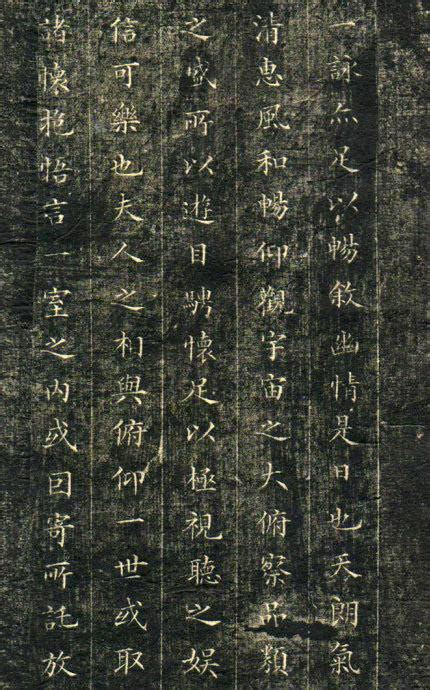 一詠亦足以暢敘幽情是日也天朗氣
清惠風和暢仰觀宇宙之大俯察品類
之盛所以遊目騁懷足以極視聽之娛
信可樂也夫人之相與俯仰一世或取
諸懷抱悟言一室之內或因寄所託放